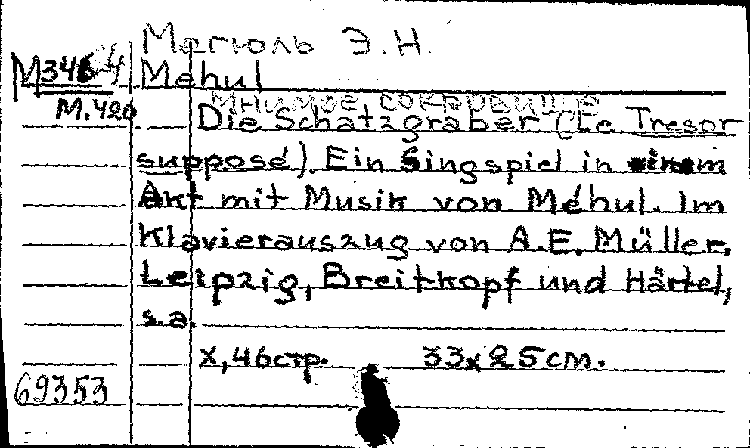 Мегюль Э.Н.
М346-4 Mehul
М.420 Мнимое сокровище
Die Schatzgraber (Le Tresor
supposé). Ein Singspiel in einem
Akt mit Musik von Méhul. Im
Klavierauszug von A.E. Müller.
Leipzig, Breitkopf und Härtel,
s.a.
X, 46 стр. 33x25 cm.
69353